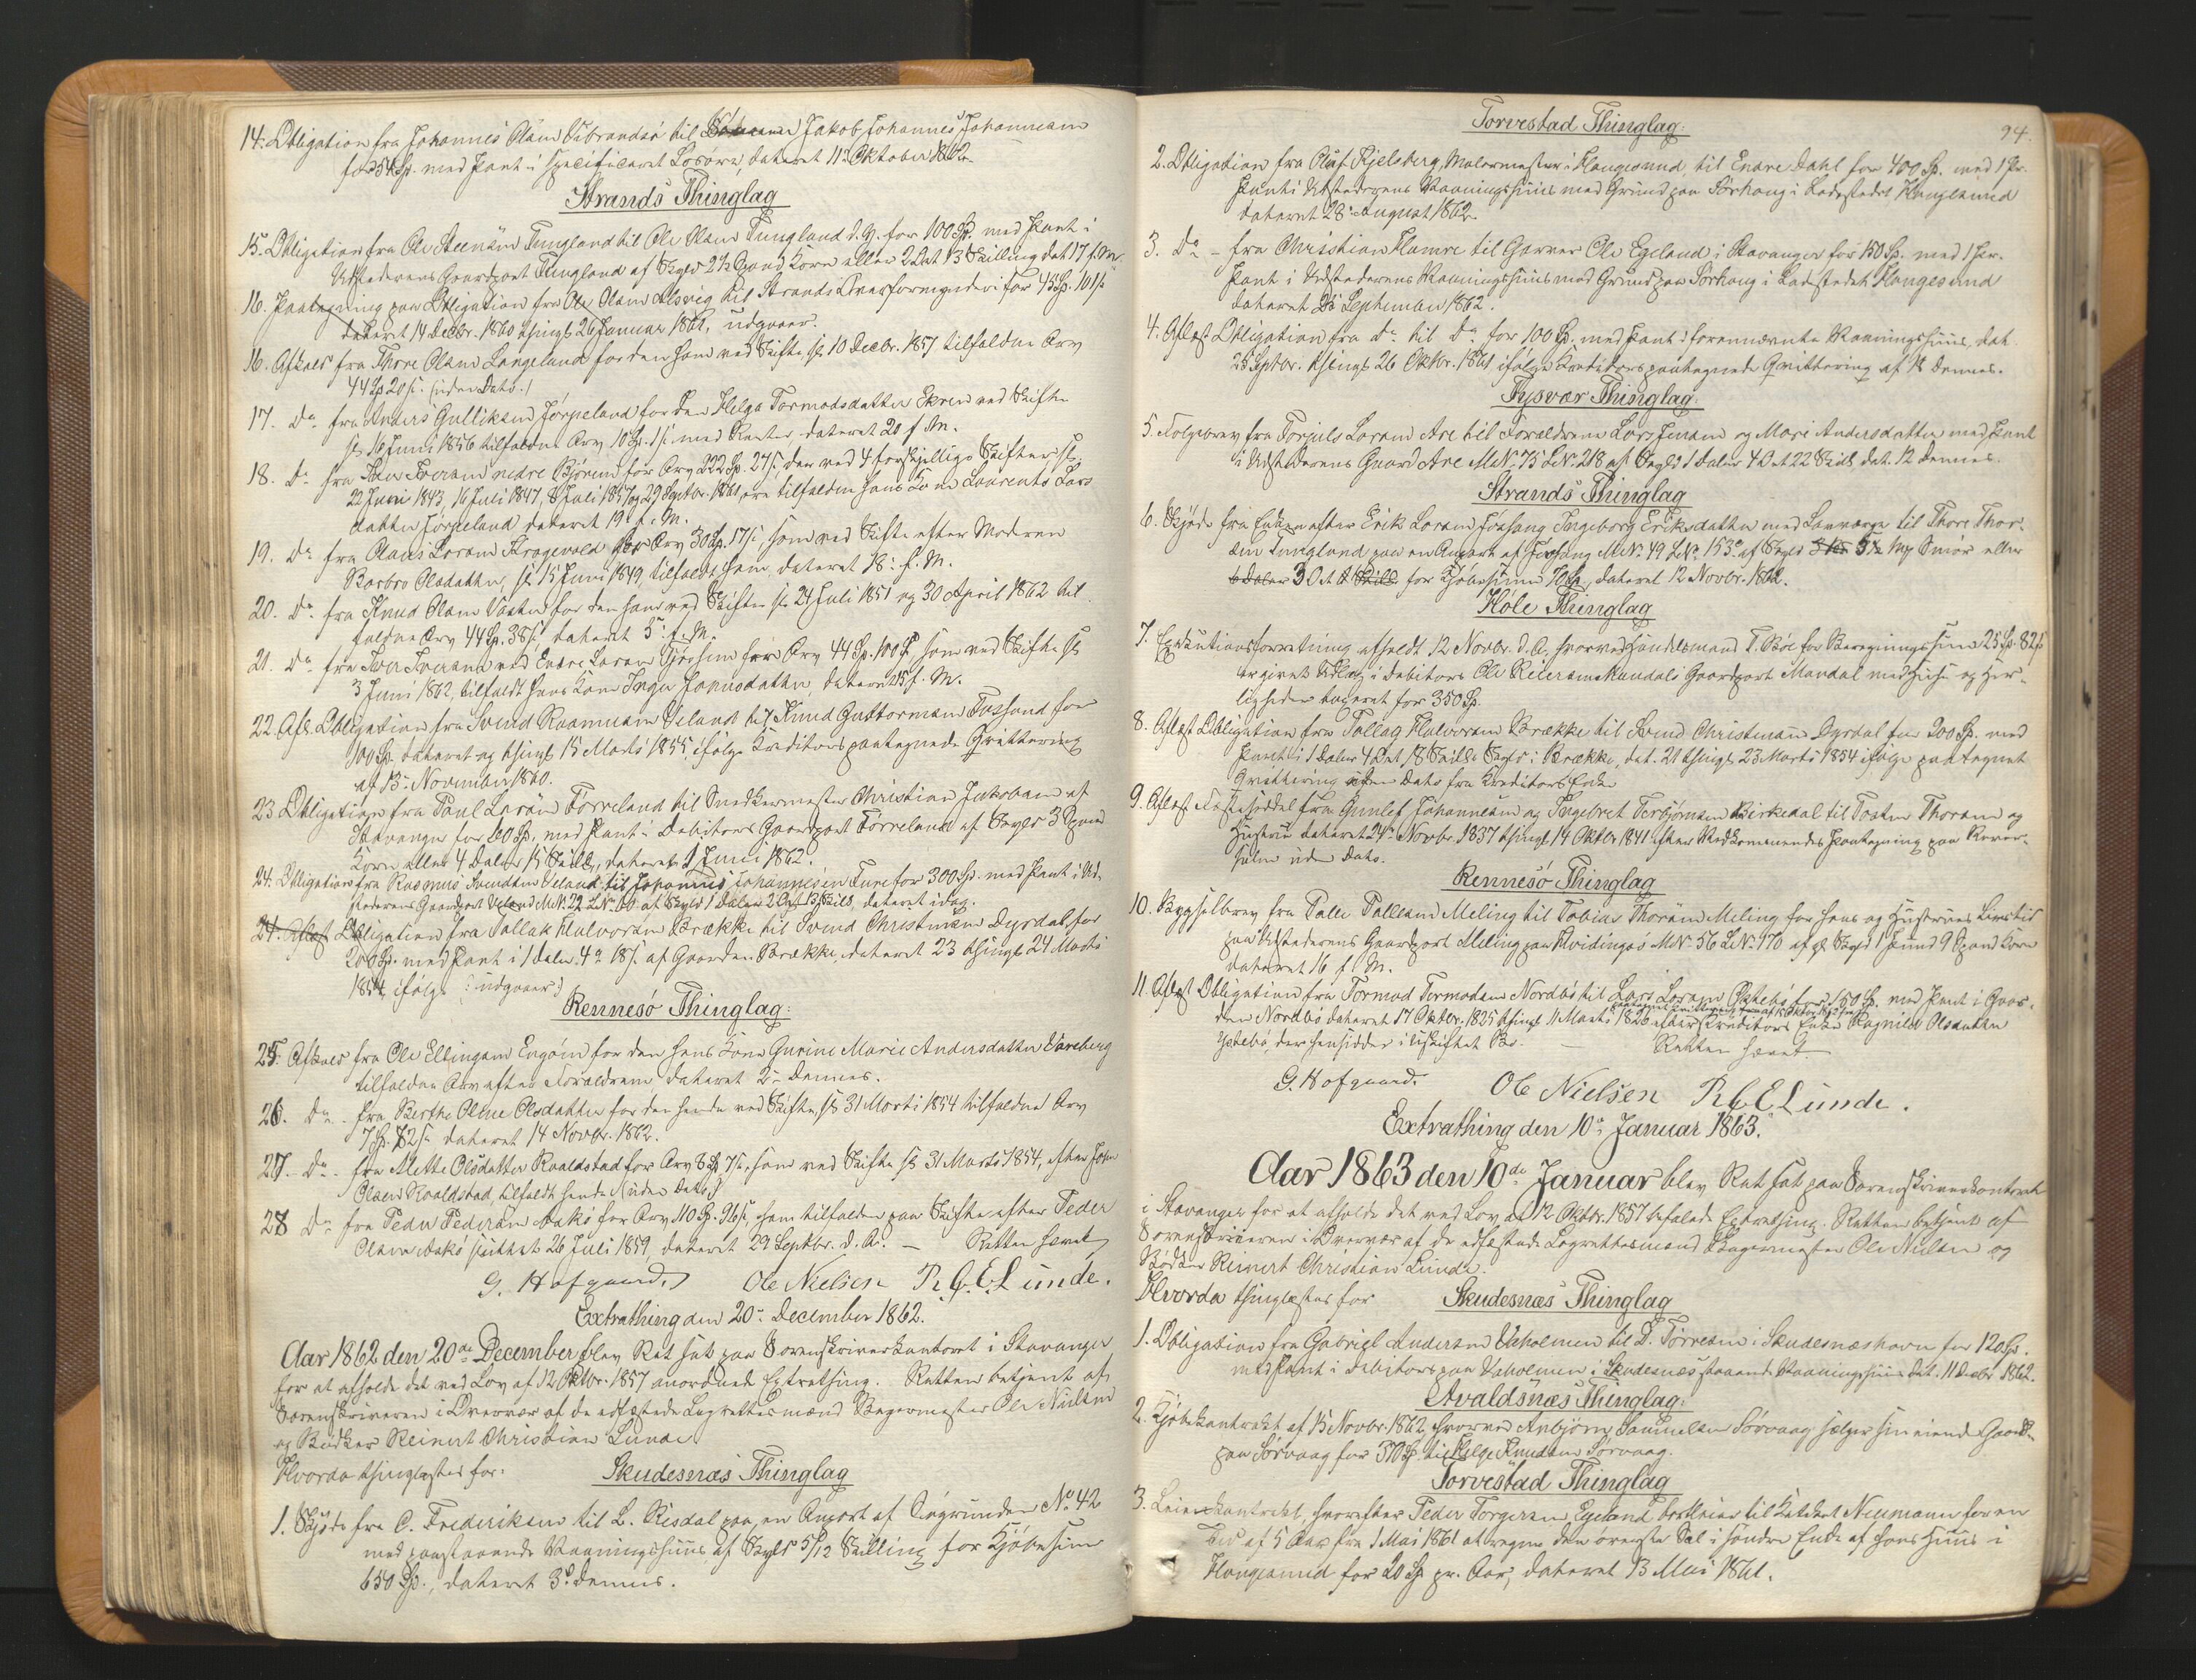 14. Obligation fra Johannes Olsen til Jakob Johannes Johannesen
for 54 Sp. med Pant i specificeret Løsøre, dateret 11te Oktober 1862.
Strands Thinglag
15. Obligation fra Ole Steensen Tungland til Ole Olsen Tungland d. y. for 100 Sp. med Pant i
Udstederens Gaardpart Tungland af Skyld 2½ Spand Korn eller 2 Ort 13 Skilling dat 17 f. M.
16. Paategning paa Obligation fra Ole Olsen Alsvig til Strands Overformynderi for 45 Sp. 101 s
dateret 14 Decbr. 1860 thingl. 26 Januar 1861, udgaaer.
16. Afkald fra Thore Olsen Langeland for den ham ved Skifte sl. 10 Decbr. 1857 tilfaldne Arv
44 Sp 20 s. (uden Dato.)
17. Do fra Anders Gulliksen Jørpeland for den Helga Tormodsdatter Ekren ved Skifte
sl. 16 Juni 1856 tilfaldne Arv 10 Sp. 1 s. med Renter, dateret 20 f. M.
18. Do fra Iver Iversen nedre Bjørem for Arv 222 Sp. 27 s., den ved 4 forskjellige Skifter sl.
22 Juni 1843, 16 Juli 1847, 8 Juli 1857 og 29 Septbr. 1861, ere tilfalden hans Kone Laurentse Lars
datter Jørpeland dateret 19 f. M.
19. Do fra Olaus Larsen Kragevold for Arv 30 Sp. 17 s., som ved Skifte efter Moderen
Barbro Olsdatter, sl. 15 Juni 1849, tilfaldt ham, dateret 18 f. M.
20. Do fra Knud Olsen for den ham ved Skifter sl. 24 Juli 1851 og 30 April 1862 til
faldne Arv 44 Sp. 38 s. dateret 5 f. M.
21. Do fra Iver Iversen ved Endre Larsen for Arv 44 Sp. 100 s som ved Skifte sl.
3 Juni 1862, tilfaldt hans Kone Inger Hansdatter, dateret 25 f. M.
22. Afl. Obligation fra Svend Rasmusen Veland til Knud Guttormsen Fossand for
100 Sp. dateret og thingl. 15 Marts 1855, ifølge Kreditors paategnede Qvittering
af 13 November 1860.
23 Obligation fra Paul Larsen Førreland til Snedkermester Christian Jakobsen af
Stavanger for 60 Sp. med Pant i Debitors Gaardpart Førreland af Skyld 3 Spand
Korn eller 4 Daler 15 Skill., dateret 1 Juni 1862.
24. Obligation fra Rasmus Svendsen Veland til Johannes Johannesen Fure for 300 Sp. med Pant i Ud-
stederens Gaardpart Veland M.N. 22 L.N. af Skyld 1 Daler 2 Ort 13 Skill, dateret idag.
24. Aflæst Obligation fra Tollak Halvorsen Brække til Svend Christensen Dyrdal for
200 Sp. med Pant i 1 Daler. 4 o 18 s. af Gaarden Brække, dateret 23 thingl. 24 Marts
1854, ifølge (: udgaaer :)
Rennesø Thinglag:
25. Afkald fra Ole Ellingsen Engøen for den hans Kone Gurine Marie Andersdatter Vareberg
tilfaldne Arv efter Forældrene dateret 2 dennes.
26. Do fra Berthe Oline Olsdatter for den hende ved Skifte, sl. 31 Marts 1854 tilfaldne Arv
7 Sp. 82 s. dateret 14 Novbr. 1862.
27. Do fra Mette Olsdatter Roaldstad for Arv 8 Sp 7 s., som ved Skifte sl. 31 Marts 1854, efter John
Olsen Roaldstad, tilfaldt hende (uden Dato.)
28 Do fra Peder Pedersen Askø for Arv 110 Sp. 96 s., som tilfalden paa Skifte efter Peder
Olsen Askø sluttet 26 Juli 1859, dateret 29 Septbr. d. A. — Retten hævet
G. Hofgaard. Ole Nielsen R. C. E. Lunde.
Extrathing den 20de December 1862.
Aar 1862 den 20de December blev Ret sat paa Sorenskriverkontoret i Stavanger
for at afholde det ved Lov af 12 Oktbr. 1857 anordnede Extrathing. Retten betjent af
Sorenskriveren i Overvær af de edfæstede Lagrettesmænd Bagermester Ole Nielsen
og Bødker Reinert Christian Lunde
Hvorda thinglæstes for:
Skudesnæs Thinglag
1. Skjøde fra C. Frederiksen til L. Risdal paa en Anpart af Søgrunden No 42
med paastaaende Vaaningshuus af Skyld 5/12 Skilling for Kjøbesum
650 Sp., dateret 3 dennes.
94.
Torvestad Thinglag:
2. Obligation fra Oluf Kjelsberg, Malermester i Haugesund, til Endre Dahl for 400 Sp. med 1 Pr.
Pant i Udstederens Vaaningshuus med Grund paa Sørhaug i Ladestedet Haugesund
dateret 28 August 1862.
3. Do fra Christian Hamre til Garver Ole Egeland i Stavanger for 150 Sp. med 1 Pr.
Pant i Udstederens Vaaningshuus med Grund paa Sørhaug i Ladestedet Haugesund
dateret 25 September 1862.
4. Aflæst Obligation fra Do til Do for 100 Sp. med Pant i forennævnte Vaaningshuus, dat.
25 Septbr. thingl. 26 Oktbr. 1861 ifølge Kreditors paategnede Qvittering af 18 dennes.
Tysvær Thinglag:
5. Følgebrev fra Torjuls Larsen Are til Forældrene Lars Jensen og Mari Andersdatter med Pant
i Udstederens Gaard Are M.N. 75 L.N. 218 af Skyld 1 Daler 4 Ort 22 Skill, dat. 12 dennes.
Strands Thinglag
6. Skjøde fra Enken efter Erik Larsen Fossang Ingeborg Eriksdatter med Laugværge til Thore Thor-
sen Tungland paa en Anpart af Fossang M.N. 49 L.N. 153 af Skyld Mg Smør eller
3 Ort for Kjøbesum 70 Sp., dateret 12 Novbr. 1862.
Høle Thinglag
7. Executionsforretning afholdt 12 Novbr. d. A. hvorved Handelsmand T. Bøe for Beregningssum 25 Sp. 82 s
er givet Udlæg i Debitors Ole Reiersen Mandals Gaardpart Mandal med Huse og Her-
ligheder taxeret for 350 Sp.
8. Aflæst Obligation fra Tollag Halvorsen Brække til Svend Christensen Dyrdal for 200 Sp. med
Pant i 1 Daler 4 Ort 18 Skill. Skyld i Brække, dat. 21 thingl. 23 Marts 1854 ifølge paategnet
Qvittering uden Dato fra Kreditors Enke
9. Aflæst Fæsteseddel fra Gunlef Johannesen og Ingebret Torbjørnsen Birkedal til Tosten Thorsen og
Hustru dateret 24 Novbr. 1837 thingl. 14 Oktbr 1841 efter Vedkommendes Paategning paa
uden Dato.
Rennesø Thinglag
10. Bygselbrev fra Tolle Tollesen Meling til Tobias Thorsen Meling for hans og Hustrues Livstid
paa Udstederens Gaardpart Meling paa Hvidingsø M.N. 56 L.N. 170 af gl. Skyld 1 Pund 9 Spand Korn
dateret 16 f. M.
11. Aflæst Obligation fra Tormod Tormodsen Nordbø til Lars Larsen Østebø for 150 Sp. med Pant i Gaar-
den Nordbø dateret 17 Oktbr. 1825 thingl. 11 Marts 1826 efter Kreditors Enke Ragnild Olsdatter
Østebø, der hensidder i uskiftet Bo. — Retten hævet
G. Hofgaard. Ole Nielsen R. C. E. Lunde.
Extrathing den 10de Januar 1863.
Aar 1863 den 10de Januar blev Ret sat paa Sorenskriverkontoret
i Stavanger for at afholde det ved Lov af 12 Oktbr. 1857 befalede Extrathing. Retten betjent af
Sorenskriveren i Overvær af de edfæstede Lagrettesmænd Bagermester Ole Nielsen og
Bødker Reinert Christian Lunde.
Hvorda thinglæstes for Skudesnæs Thinglag
1. Obligation fra Gabriel Andersen Vaholmen til D. Tørresen i Skudesnæshavn for 120 Sp.
med Pant i Debitors paa Vaholmen i Skudesnæs staaende Vaaningshuus dat. 11 Decbr 1862.
Avaldsnæs Thinglag:
2. Kjøbekontrakt af 15 Novbr. 1862, hvorved Anbjørn Samuelsen Sørvaag sælger sin eiende Gaard
paa Sørvaag for 370 Sp. til Helge Knudsen Sørvaag.
Torvestad Thinglag
3. Leiekontrakt, hvorefter Peder Torgersen Egeland bortleier til Kateket Neumann for en
Tid af 5 Aar fra 1 Mai 1861 at regne den øverste Sal i søndre Ende af hans Huus i
Haugesund for 20 Sp. pr. Aar, dateret 13 Mai 1861.